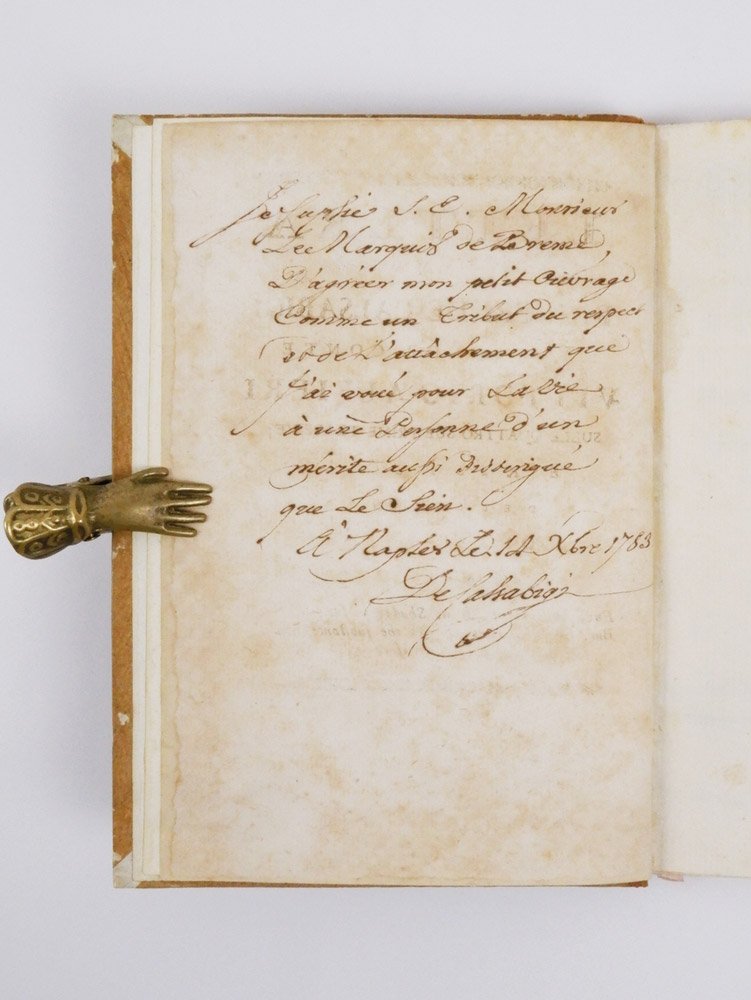 Je supplie S. E. Monsieur
Le Marquis de Breme
D'agréer mon petit Ouvrage
Comme un Tribut du respect
et de L'attachement que
J'ai voué pour La Vie
à une Personne d'un
mérite aussi distingué
que Le Sien.
A Naples Le 14 Xbre 1783
De Calsabigi